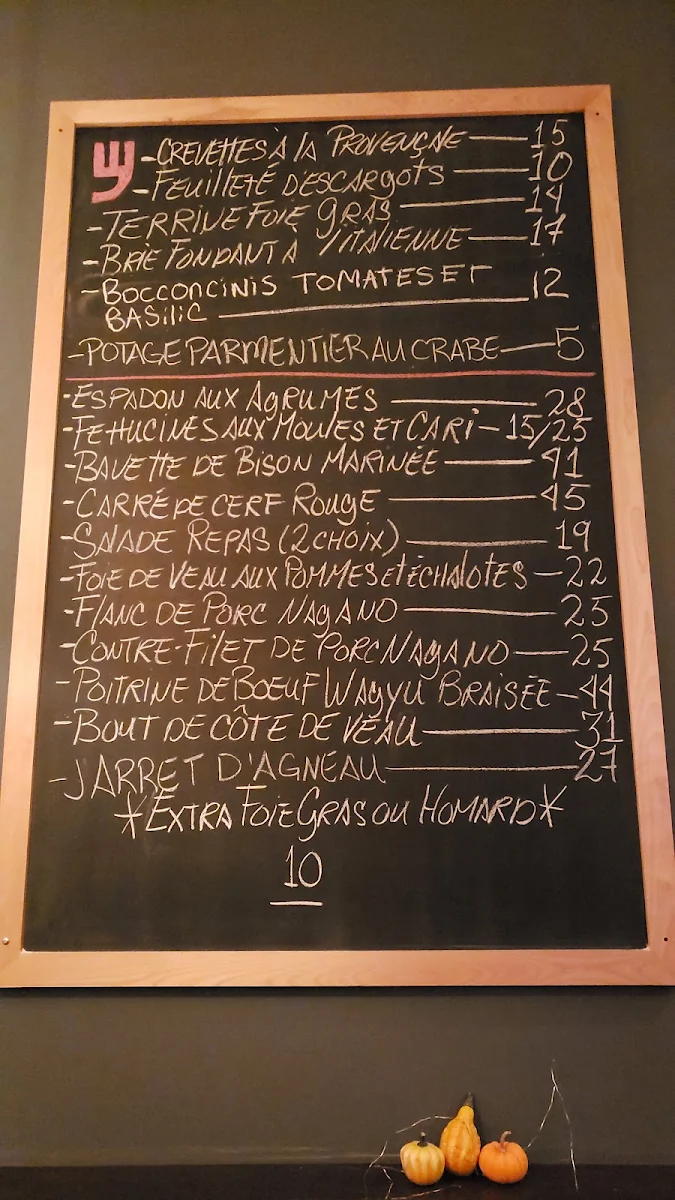 -CREVETTES À LA PROVENÇALE — 15
-FEUILLETÉ D'ESCARGOTS — 10
-TERRINE FOIE GRAS — 14
-BRIE FONDANT À l'ITALIENNE — 17
-BOCCONCINIS TOMATES ET — 12
BASILIC
-POTAGE PARMENTIER AU CRABE — 5
-ESPADON AUX AGRUMES — 28
-FETTUCINES AUX MOULES ET CARI — 15/25
-BAVETTE DE BISON MARINÉE — 41
-CARRÉ DE CERF ROUGE — 45
-SALADE REPAS (2 CHOIX) — 19
-FOIE DE VEAU AUX POMMES et ÉCHALOTES — 22
-FLANC DE PORC NAGANO — 25
-CONTRE-FILET DE PORC NAGANO — 25
-POITRINE DE BOEUF WAGYU BRAISÉE — 44
-BOUT DE CÔTE DE VEAU — 31
-JARRET D'AGNEAU — 27
*EXTRA FOIE GRAS OU HOMARD*
10